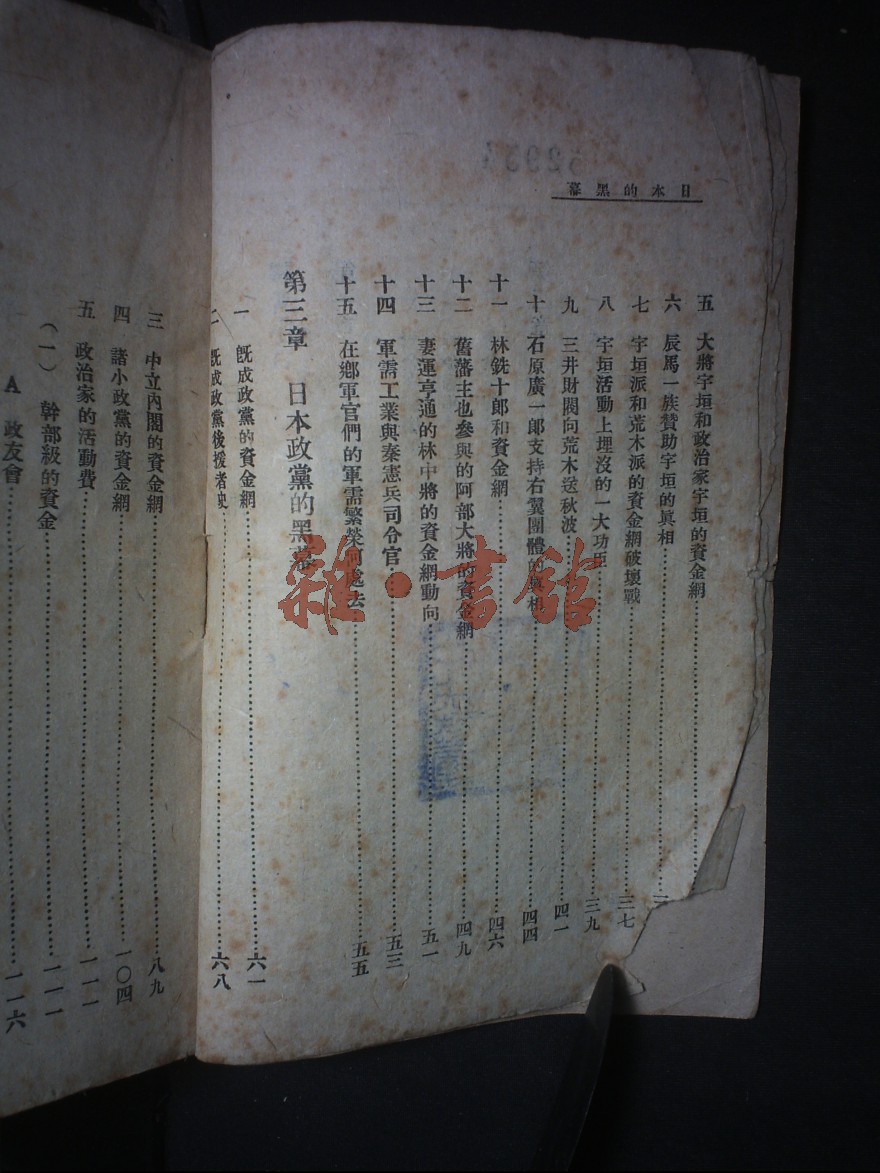 日本的黑幕
五 大將宇垣和政治家宇垣的資金網
六 辰馬一族贊助宇垣的眞相
七 宇垣派和荒木派的資金網破壞戰 三七
八 宇垣活動上埋沒的一大功臣 三九
九 三井財閥向荒木送秋波 四一
十 石原廣一郎支持右翼團體的眞相 四四
十一 林銑十郎和資金網 四六
十二 舊藩主也參與的阿部大將的資金網 四九
十三 妻運亨通的林中將的資金網動向 五一
十四 軍需工業與秦憲兵司令官 五三
十五 在鄉軍官們的軍需繁榮何處去 五五
第三章 日本政黨的黑幕
一 旣成政黨的資金網 六一
二 旣成政黨後援者史 六八
三 中立內閣的資金網 八九
四 諸小政黨的資金網 一〇四
五 政治家的活動費 一一一
(一) 幹部級的資金 一一一
A 政友會 一一六
雜·書館